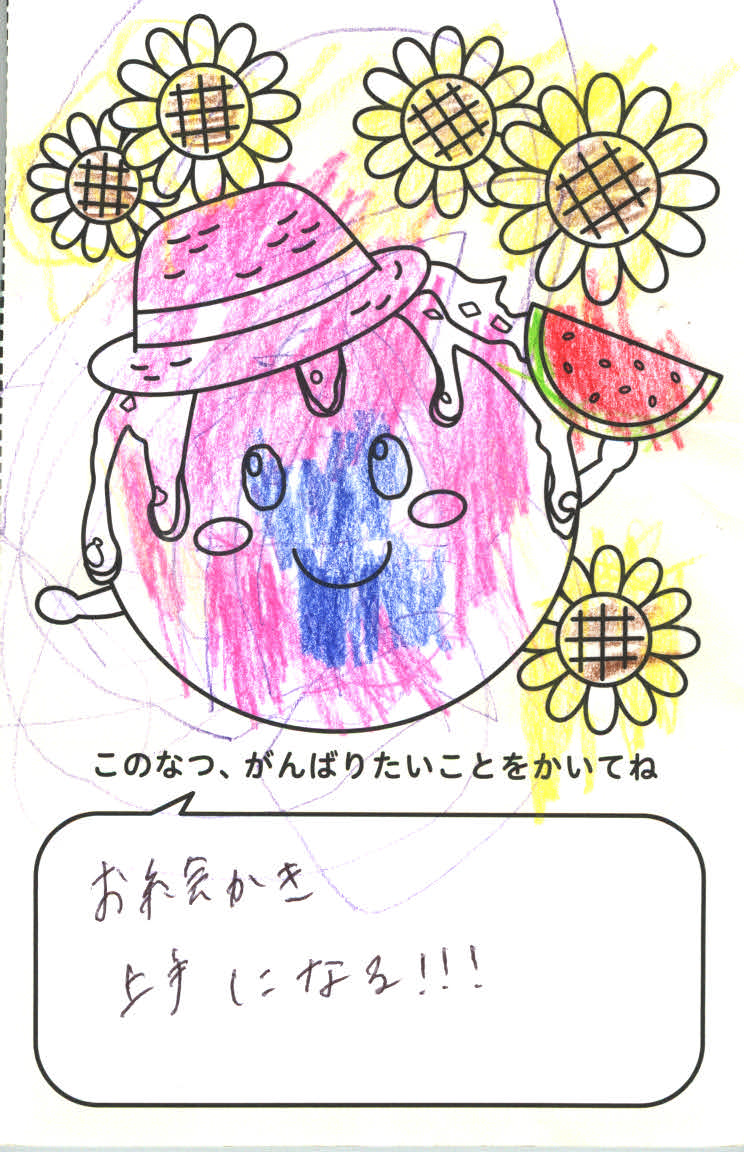 このなつ、がんばりたいことをかいてね
お絵かき
上手になる!!!